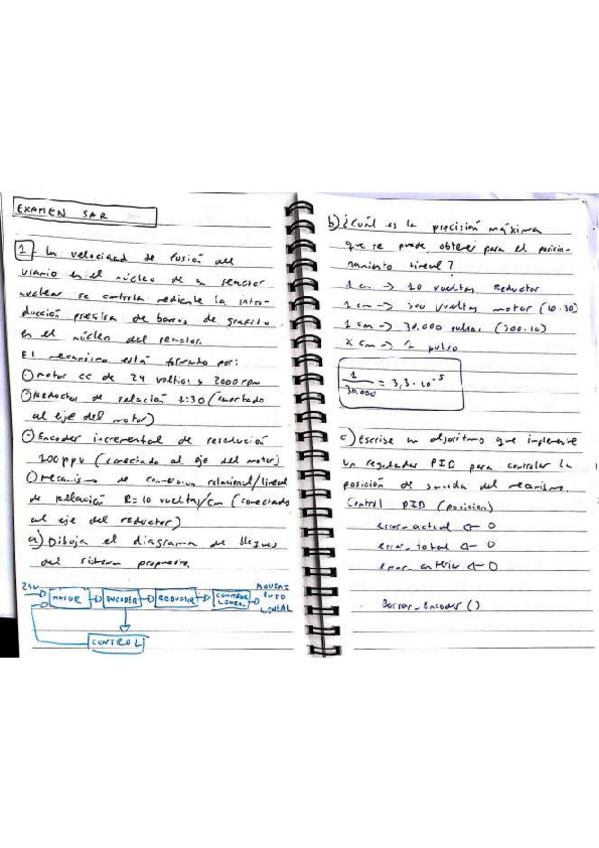 EXAMEN SAR
1 La velocidad de fusión del
uranio en el núcleo de un reactor
nuclear se controla mediante la intro-
ducción precisa de barras de grafito
en el núcleo del reactor.
El mecanismo está formado por:
- Motor cc de 24 voltios y 2000 rpm
- Reductor de relación 1:30 (conectado
al eje del motor)
- Encoder incremental de resolución
100 ppv (conectado al eje del motor)
- Mecanismo de conversion rotacional/lineal
de relación R=10 vueltas/cm (conectado
al eje del reductor)
a) Dibuja el diagrama de bloques
del sistema propuesto.
24V
MOTOR
ENCODER
REDUCTOR
LINEAL
CONTROL
b) ¿Cuál es la precisión máxima
que se puede obtener para el posicio-
namiento lineal?
1 cm → 10 vueltas reductor
1 cm → 300 vueltas motor (10·30)
1 cm → 30.000 pulsos
x cm → 1 pulso
1/30.000 = 3,3·10⁻⁵
c) Escribe un algoritmo que implemente
un regulador PID para controlar la
posición de salida del mecanismo.
Control PID (posicion)
error_actual ← 0
error_total ← 0
error_anterior ← 0
Borrar_Encoder ()